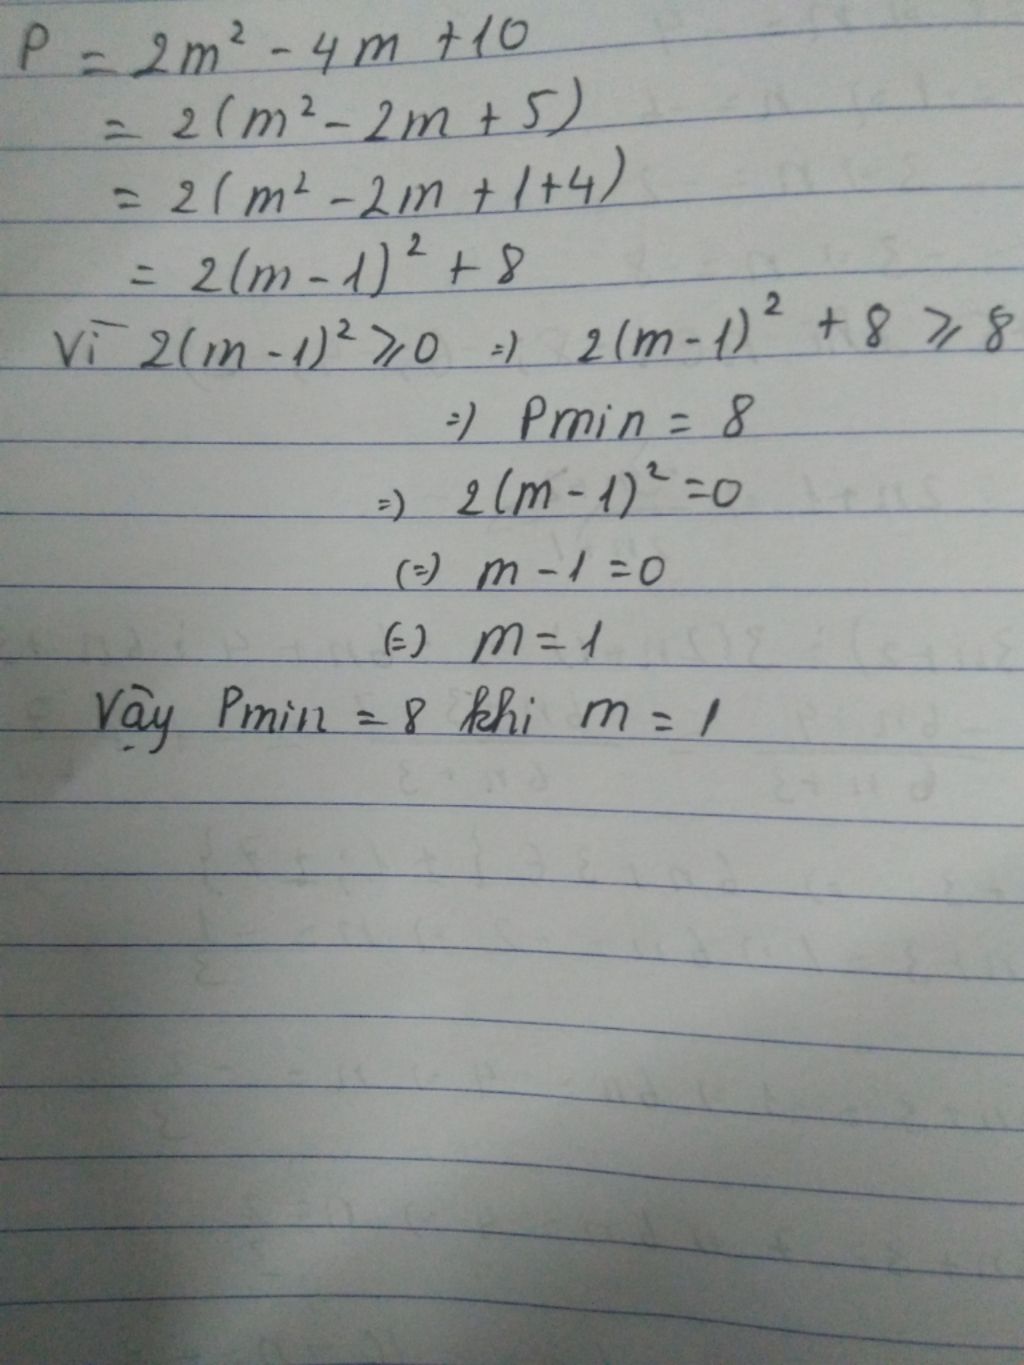 P = 2m² - 4m + 10
= 2(m² - 2m + 5)
= 2(m² - 2m + 1 + 4)
= 2(m - 1)² + 8
Vì 2(m - 1)² ⩾ 0 => 2(m - 1)² + 8 ⩾ 8
=> Pmin = 8
=> 2(m - 1)² = 0
(=) m - 1 = 0
(=) m = 1
Vậy Pmin = 8 khi m = 1